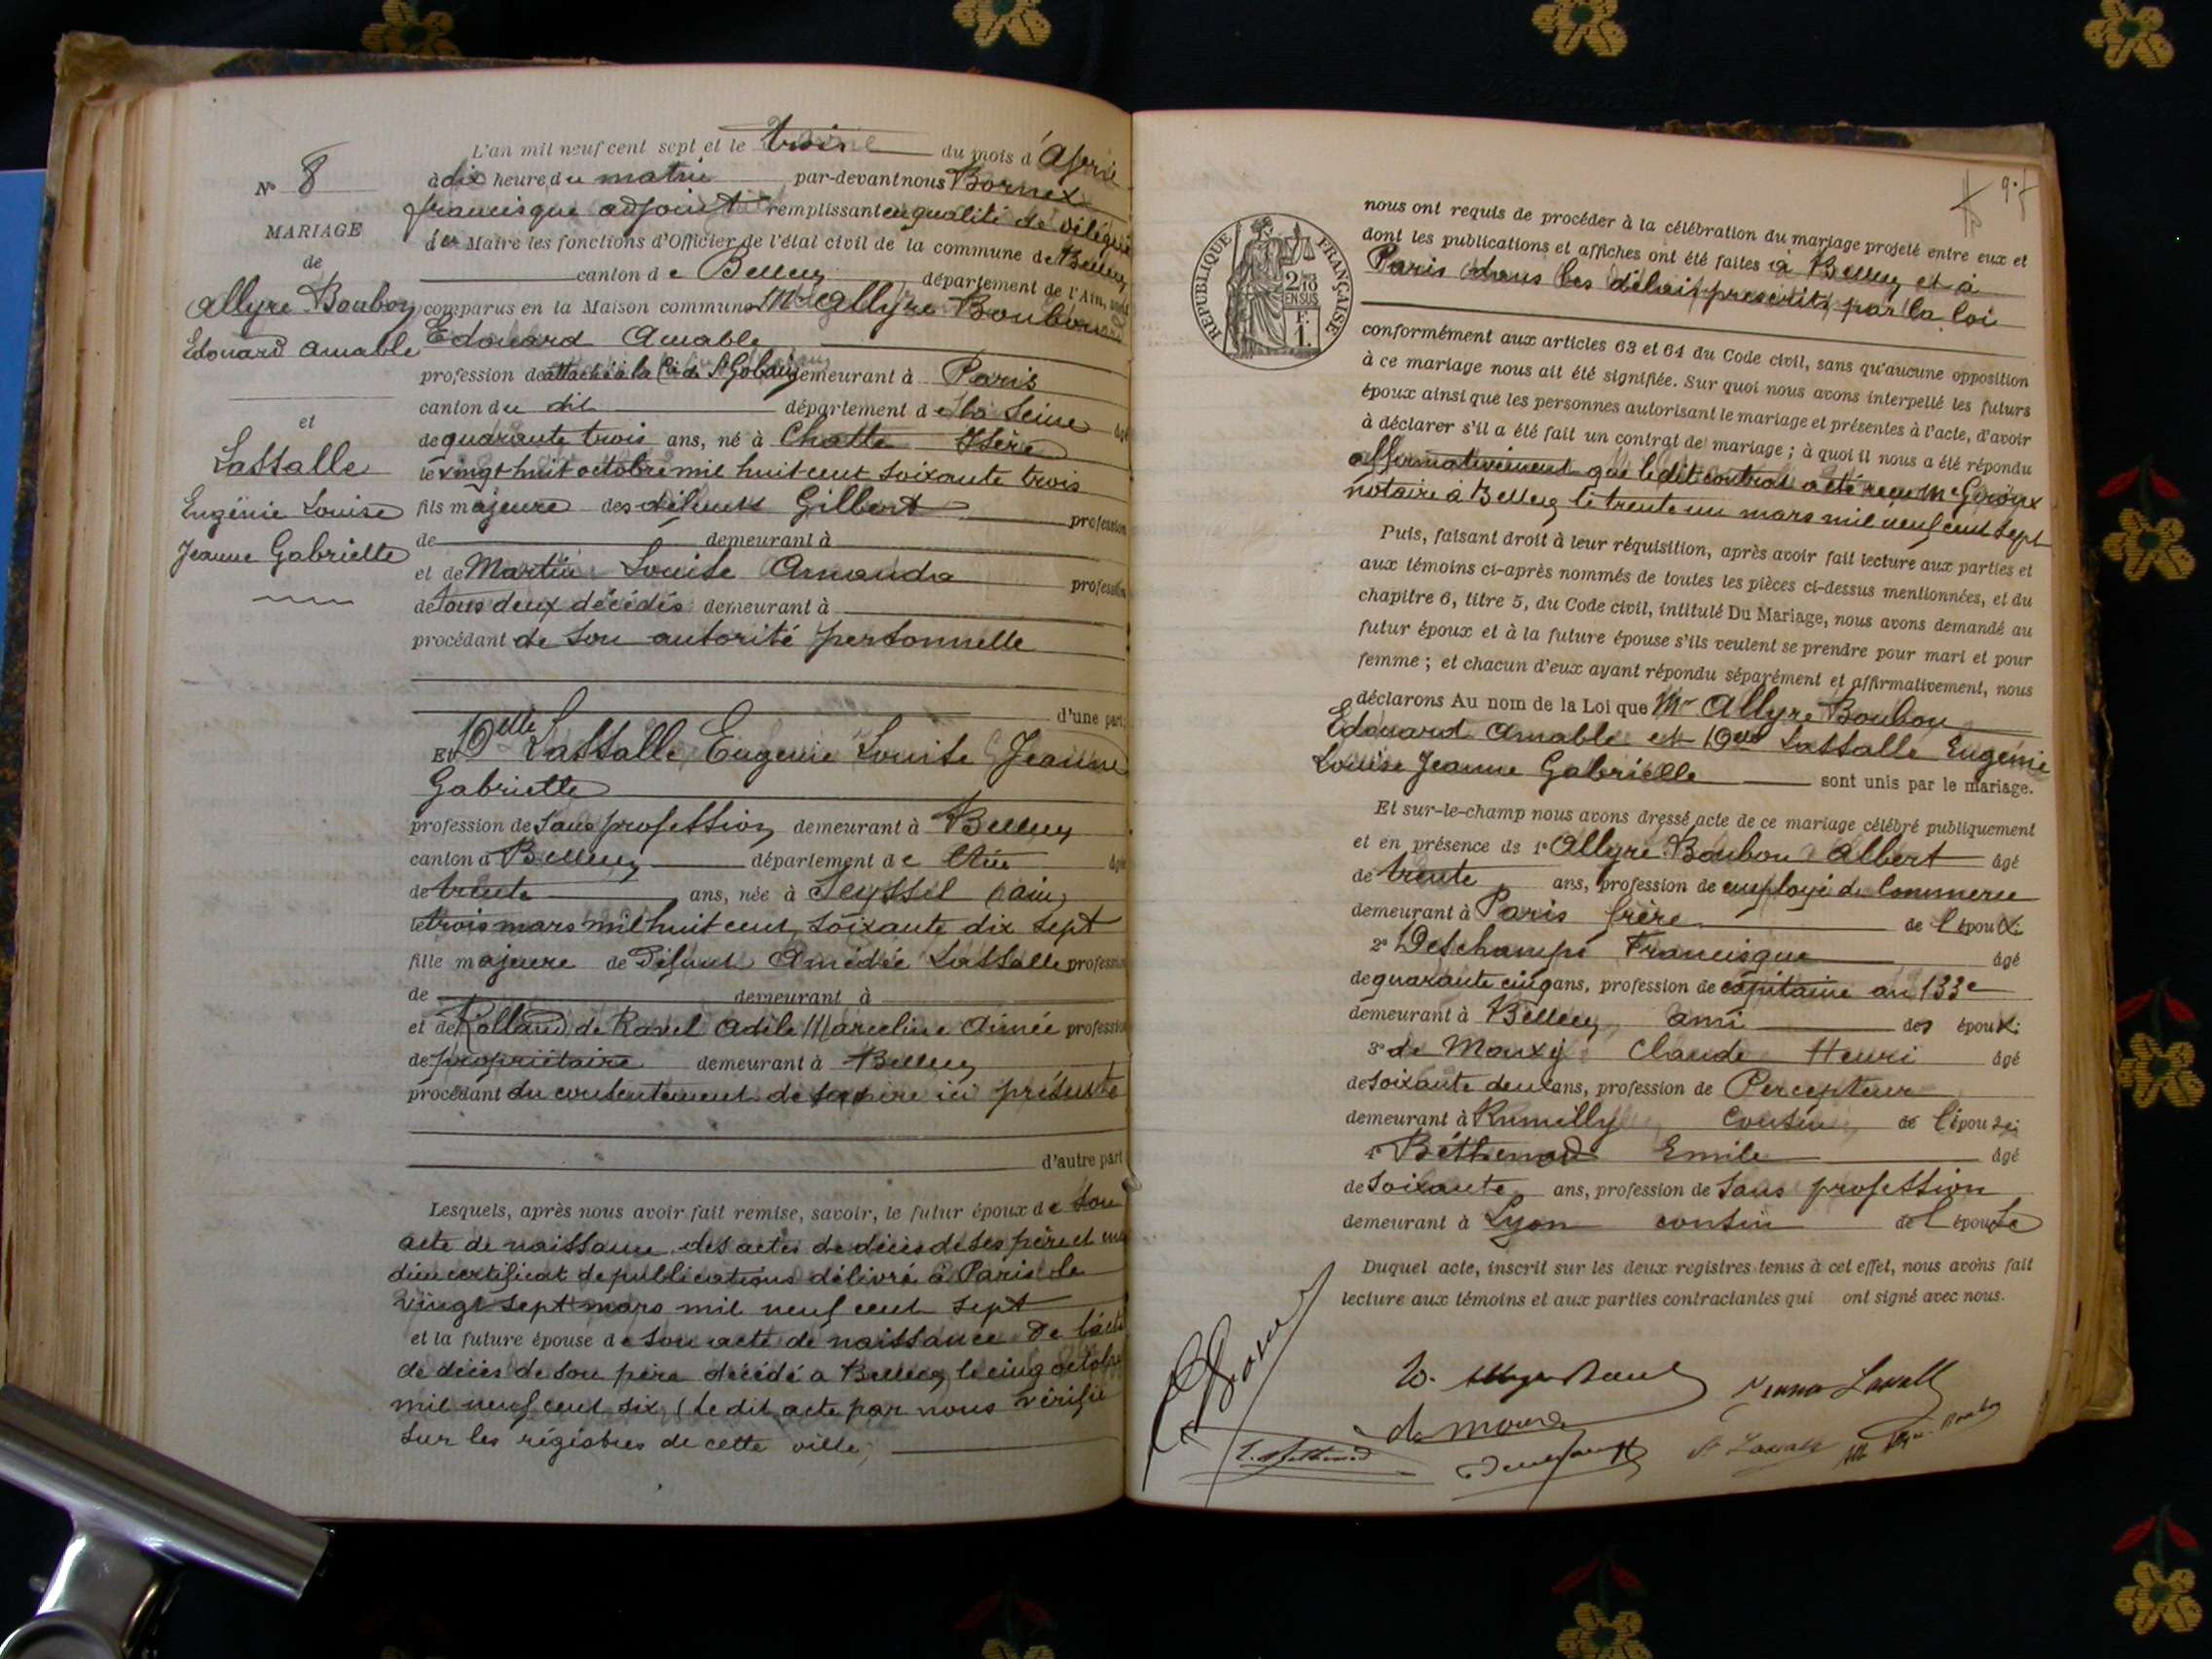 L'an mil neuf cent sept et le trois du mois d'Avril
N° 8
à dix heure du matin par-devant nous Bornex
francisque adjoint remplissant en qualité de délégué
MARIAGE
du Maire les fonctions d'Officier de l'état civil de la commune de Belley
de
canton de Belley département de l'Ain, sont
Allyre Boubon
comparus en la Maison commune Mr Allyre Boubon
Edouard Amable
Edouard Amable
profession de attaché à la Cie de St Gobain demeurant à Paris
canton du dit département de la Seine âgé
et
de quarante trois ans, né à Chatte Isère
Lassalle
le vingt huit octobre mil huit cent soixante trois
Eugénie Louise
fils majeure des défunts Gilbert profession
Jeanne Gabrielle
de demeurant à
et de Martin Louise Amanda profession
de tous deux décédés demeurant à
procédant de son autorité personnelle
d'une part;
Et Delle Lassalle Eugenie Louise Jeanne
Gabrielle
profession de sans profession demeurant à Belley
canton d Belley département de l'Ain âgé
de trente ans, née à Seyssel (ain)
le trois mars mil huit cent soixante dix sept
fille majeure de Défunt Amédée Lassalle profession
de demeurant à
et de Rolland de Ravel Adèle Marceline Aimée profession
de propriétaire demeurant à Belley
procédant du consentement de sa mère ici présente
d'autre part
Lesquels, après nous avoir fait remise, savoir, le futur époux de son
acte de naissance des actes de décès de ses père et mère
d'un certificat de publications délivré à Paris le
vingt sept mars mil neuf cent sept
et la future épouse de son acte de naissance De l'acte
de décès de son père décédé a Belley le cinq octobre
mil neuf cent six (le dit acte par nous vérifié
sur les régistres de cette ville;
RÉPUBLIQUE FRANÇAISE
2/10
EN SUS
F.
1.
nous ont requis de procéder à la célébration du mariage projeté entre eux et
dont les publications et affiches ont été faites à Belley et à
Paris dans les délais prescrits par la loi
conformément aux articles 63 et 64 du Code civil, sans qu'aucune opposition
à ce mariage nous ait été signifiée. Sur quoi nous avons interpellé les futurs
époux ainsi que les personnes autorisant le mariage et présentes à l'acte, d'avoir
à déclarer s'il a été fait un contrat de mariage ; à quoi il nous a été répondu
affirmativement que le dit contrat a été reçu Me Giroux
notaire à Belley le trente un mars mil neuf cent sept
Puis, faisant droit à leur réquisition, après avoir fait lecture aux parties et
aux témoins ci-après nommés de toutes les pièces ci-dessus mentionnées, et du
chapitre 6, titre 5, du Code civil, intitulé Du Mariage, nous avons demandé au
futur époux et à la future épouse s'ils veulent se prendre pour mari et pour
femme ; et chacun d'eux ayant répondu séparément et affirmativement, nous
déclarons Au nom de la Loi que Mr Allyre Boubon
Edouard Amable et Delle Lassalle Eugénie
Louise Jeanne Gabrielle sont unis par le mariage.
Et sur-le-champ nous avons dressé acte de ce mariage célébré publiquement
et en présence de 1° Allyre Boubon Albert âgé
de trente ans, profession de employé de Commerce
demeurant à Paris frère de l'époux;
2° Deschamps Francisque âgé
de quarante cinq ans, profession de capitaine au 133e
demeurant à Belley ami des époux;
3° de Mouxy Claude Henri âgé
de soixante deux ans, profession de Percepteur
demeurant à Rumilly cousin de l'épouse;
4° Béthenod Emile âgé
de soixante ans, profession de sans profession
demeurant à Lyon cousin de l'épouse
Duquel acte, inscrit sur les deux registres tenus à cet effet, nous avons fait
lecture aux témoins et aux parties contractantes qui ont signé avec nous.